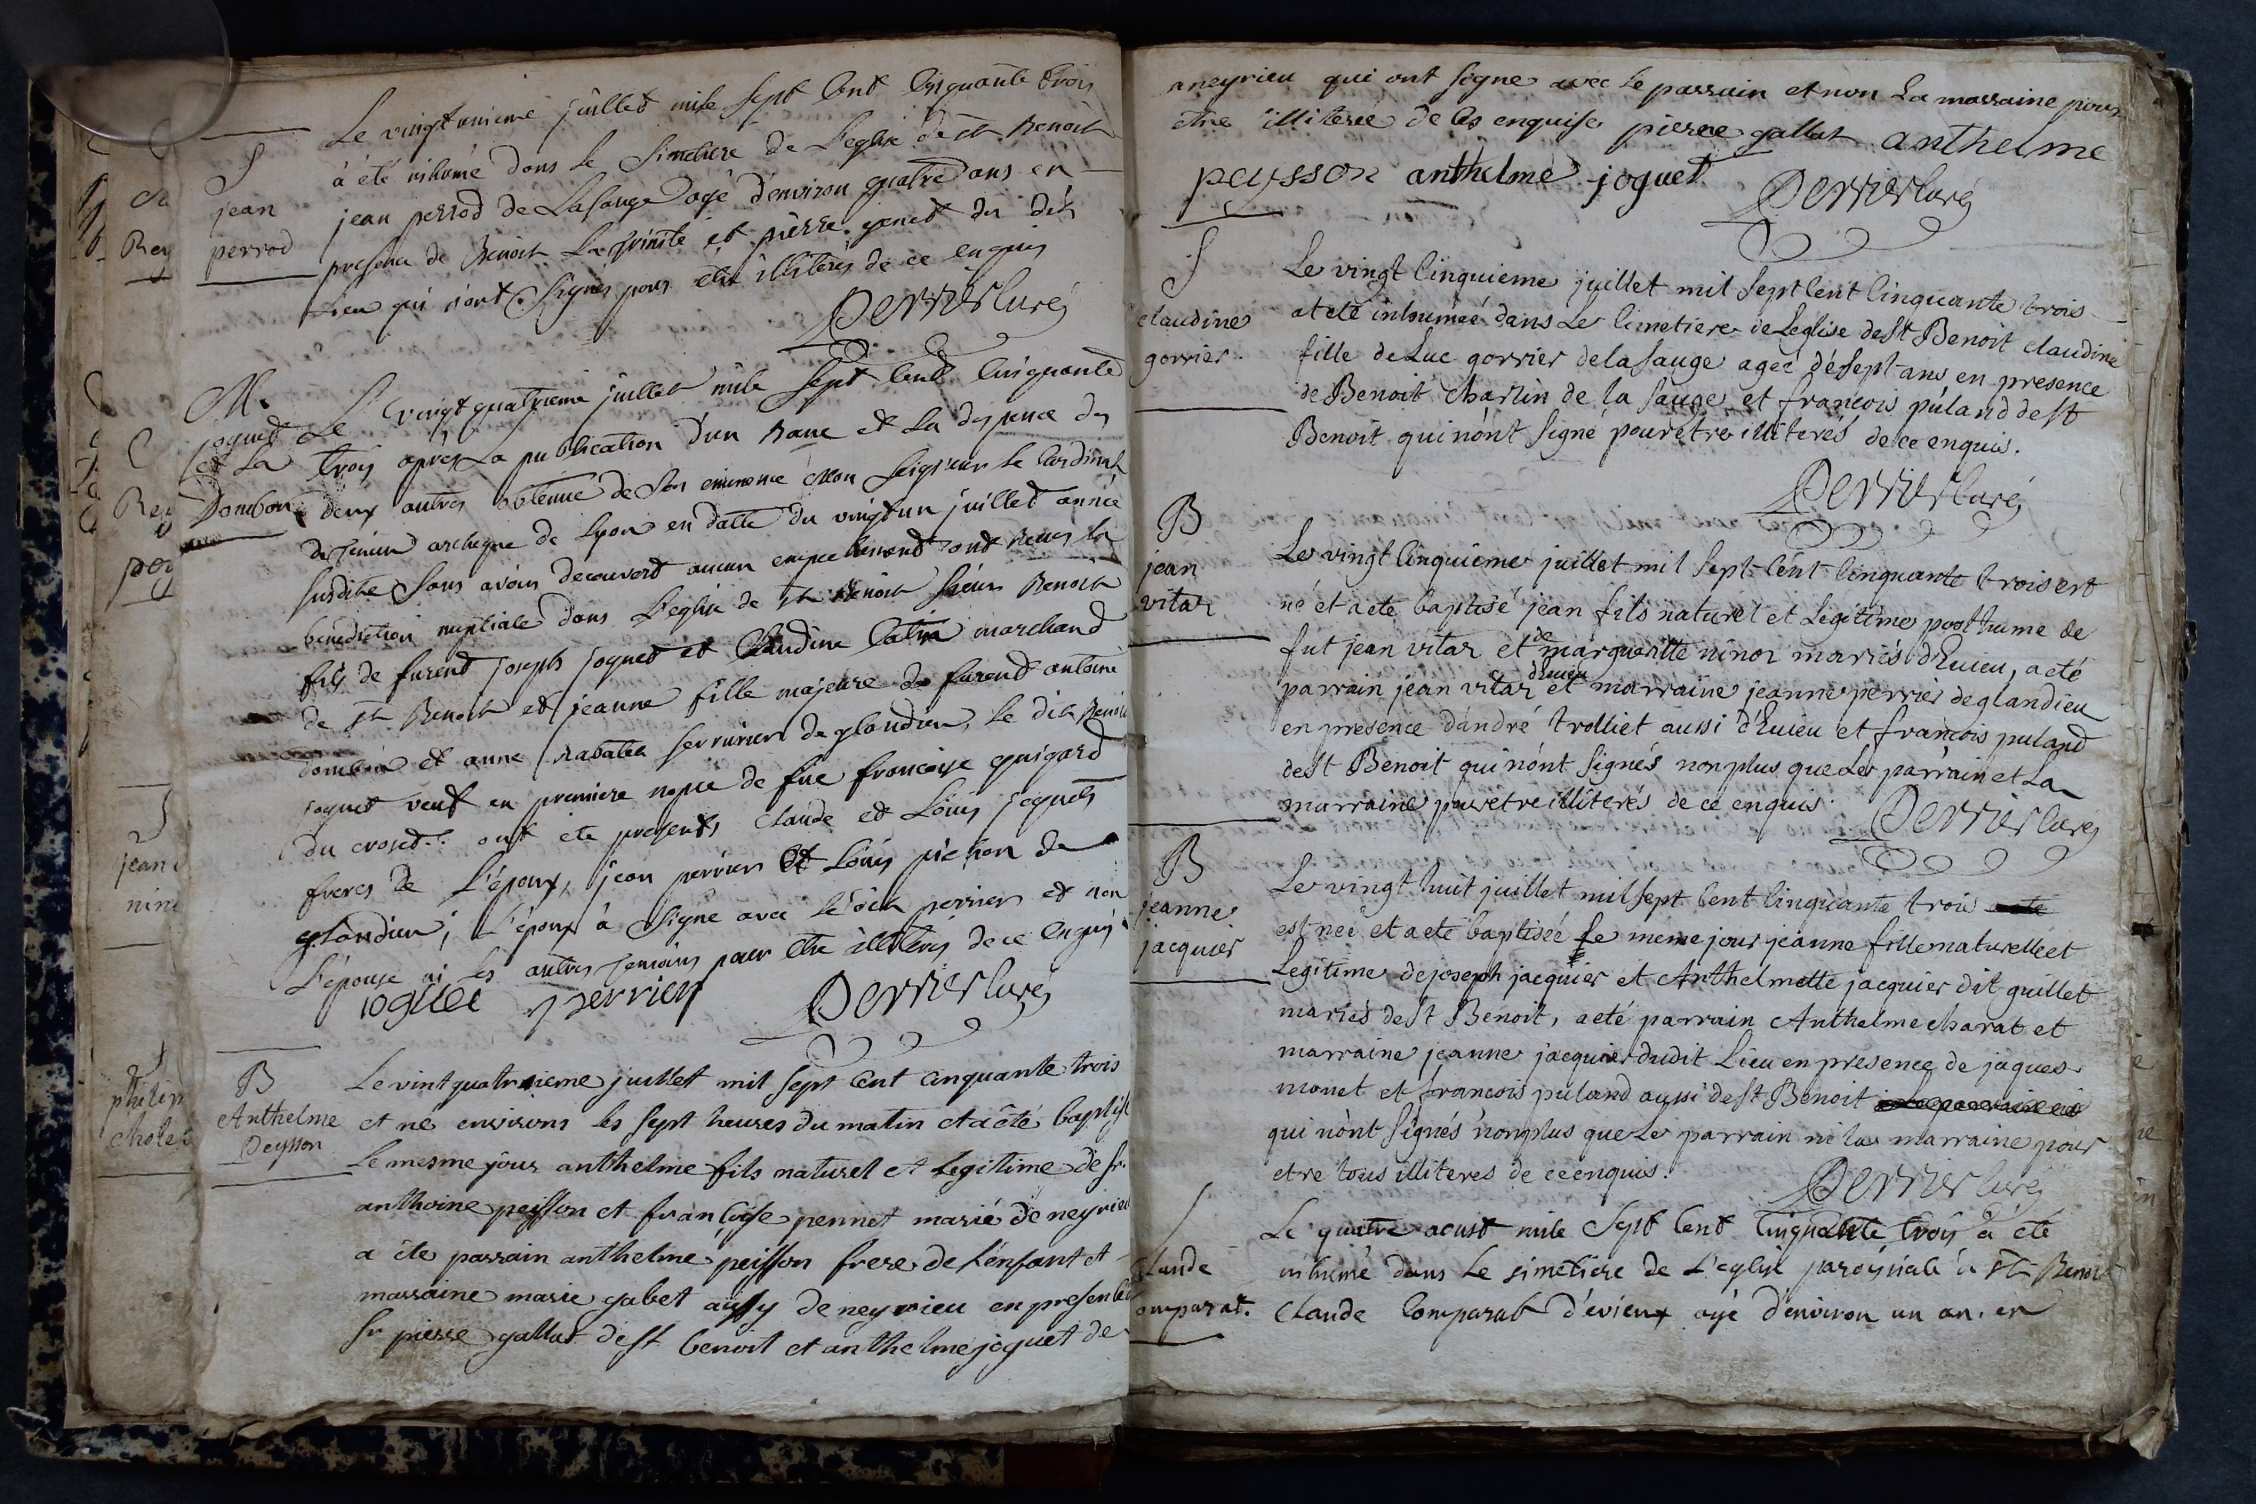 S
jean
perrod
Le vingt unieme juillet mile sept cent cinquante trois
à été inhumé dans le simetiere de L'eglise de st Benoit
jean perrod de Lasauge agé d'environ quatre ans en
presence de Benoit La trinité et pierre genet du dit
Lieu qui n'ont signés pour être illiterés de ce enquis
Perrier curé
M.
joquet
et La
Dombon
Le vingt quatrieme juillet mile sept cent cinquante
trois apres La publication d'un banc et La dispence des
deux autres obtenue de son eminence Mon seigneur le Cardinal
de tencin archeque de Lyon en datte du vingt un juillet année
susdite sans avoir decouvert aucun empechement ont receu la
benediction nuptiale dans L'eglise de st Benoit sieur Benoit
fils de furent joseph joquet et Claudine Catin marchand
de st Benoit et jeanne fille majeure de furent antoine
dombon et anne rabatel serrurier de glandieu, Le dit Benoit
joquet veuf en premiere nopce de fue francoise guigard
du crosed. ont ete presents claude et Louis joquet
freres de L'époux, jean perrier et Louis pichon de
glandieu; L'époux à signe avec Le dit perrier et non
L'épouse ni les autres temoins pour être illiterés de ce enquis
joguet perrier Perrier curé
B
Anthelme
Peysson
Le vint quatrieme juillet mil sept cent cinquante trois
et né environs les sept heures du matin et a été baptisé
Le mesme jour anthelme fils naturel et Legitime de sr
anthoine peysson et francoise pennet marié de neyrieu
a éte parrain anthelme peisson frere de L'enfant et
marraine marie gabet aussy de neyrieu en presence
sr pierre gallat de st benoit et anthelme joguet de
aneyrieu qui ont signe avec le parrain et non La marraine pour
etre illiterée de ce enquise pierre gallat anthelme
peysson anthelme joguet
Perrier curé
S
claudine
gorrier
Le vingt cinquieme juillet mil sept cent cinquante trois
at eté inhumée dans Le cimetiere de Leglise de st Benoit claudine
fille de Luc gorrier de la sauge ageé de sept ans en presence
de Benoit charlin de la sauge et francois puland de st
Benoit qui nónt signé pour etre illiterés de ce enquis.
Perrier curé
B
jean
vitaz
Le vingt cinquieme juillet mil sept cént cinquante trois est
né et a eté baptisé jean fils naturel et Legitime posthume de
fut jean vitaz et de marguaritte ninoz mariés d'Euieu, a eté
parrain jean vitaz d'Euieu et marraine jeanne perrier de glandieu
en presence dandré trolliet aussi d'Euieu et francois puland
de st Benoit qui nónt signés non plus que Le parrain et La
marraine pour etre illiterés de ce enquis.
Perrier curé
B
jeanne
jacquier
Le vingt huit juillet mil sept cent cinquante trois
est neé et a eté baptiseé le meme jour jeanne fille naturelle et
Legitime de joseph jacquier et Anthelmette jacquier dit guillet
mariés de st Benoit, a eté parrain Anthelme charat et
marraine jeanne jacquier dudit Lieu en presence de jaques
monet et francois puland aussi de st Benoit
qui nónt signés non plus que Le parrain ni la marraine pour
etre tous illiteres de ce enquis.
Perrier curé
S
Claude
Comparat.
Le quatre aoust mile sept cent cinquante trois a été
inhumé dans Le simetiere de L'eglise paroissiale de st Benoit
Claude Comparat d'evieux agé d'environ un an. en
jean
nino
philip
cholet
Rey